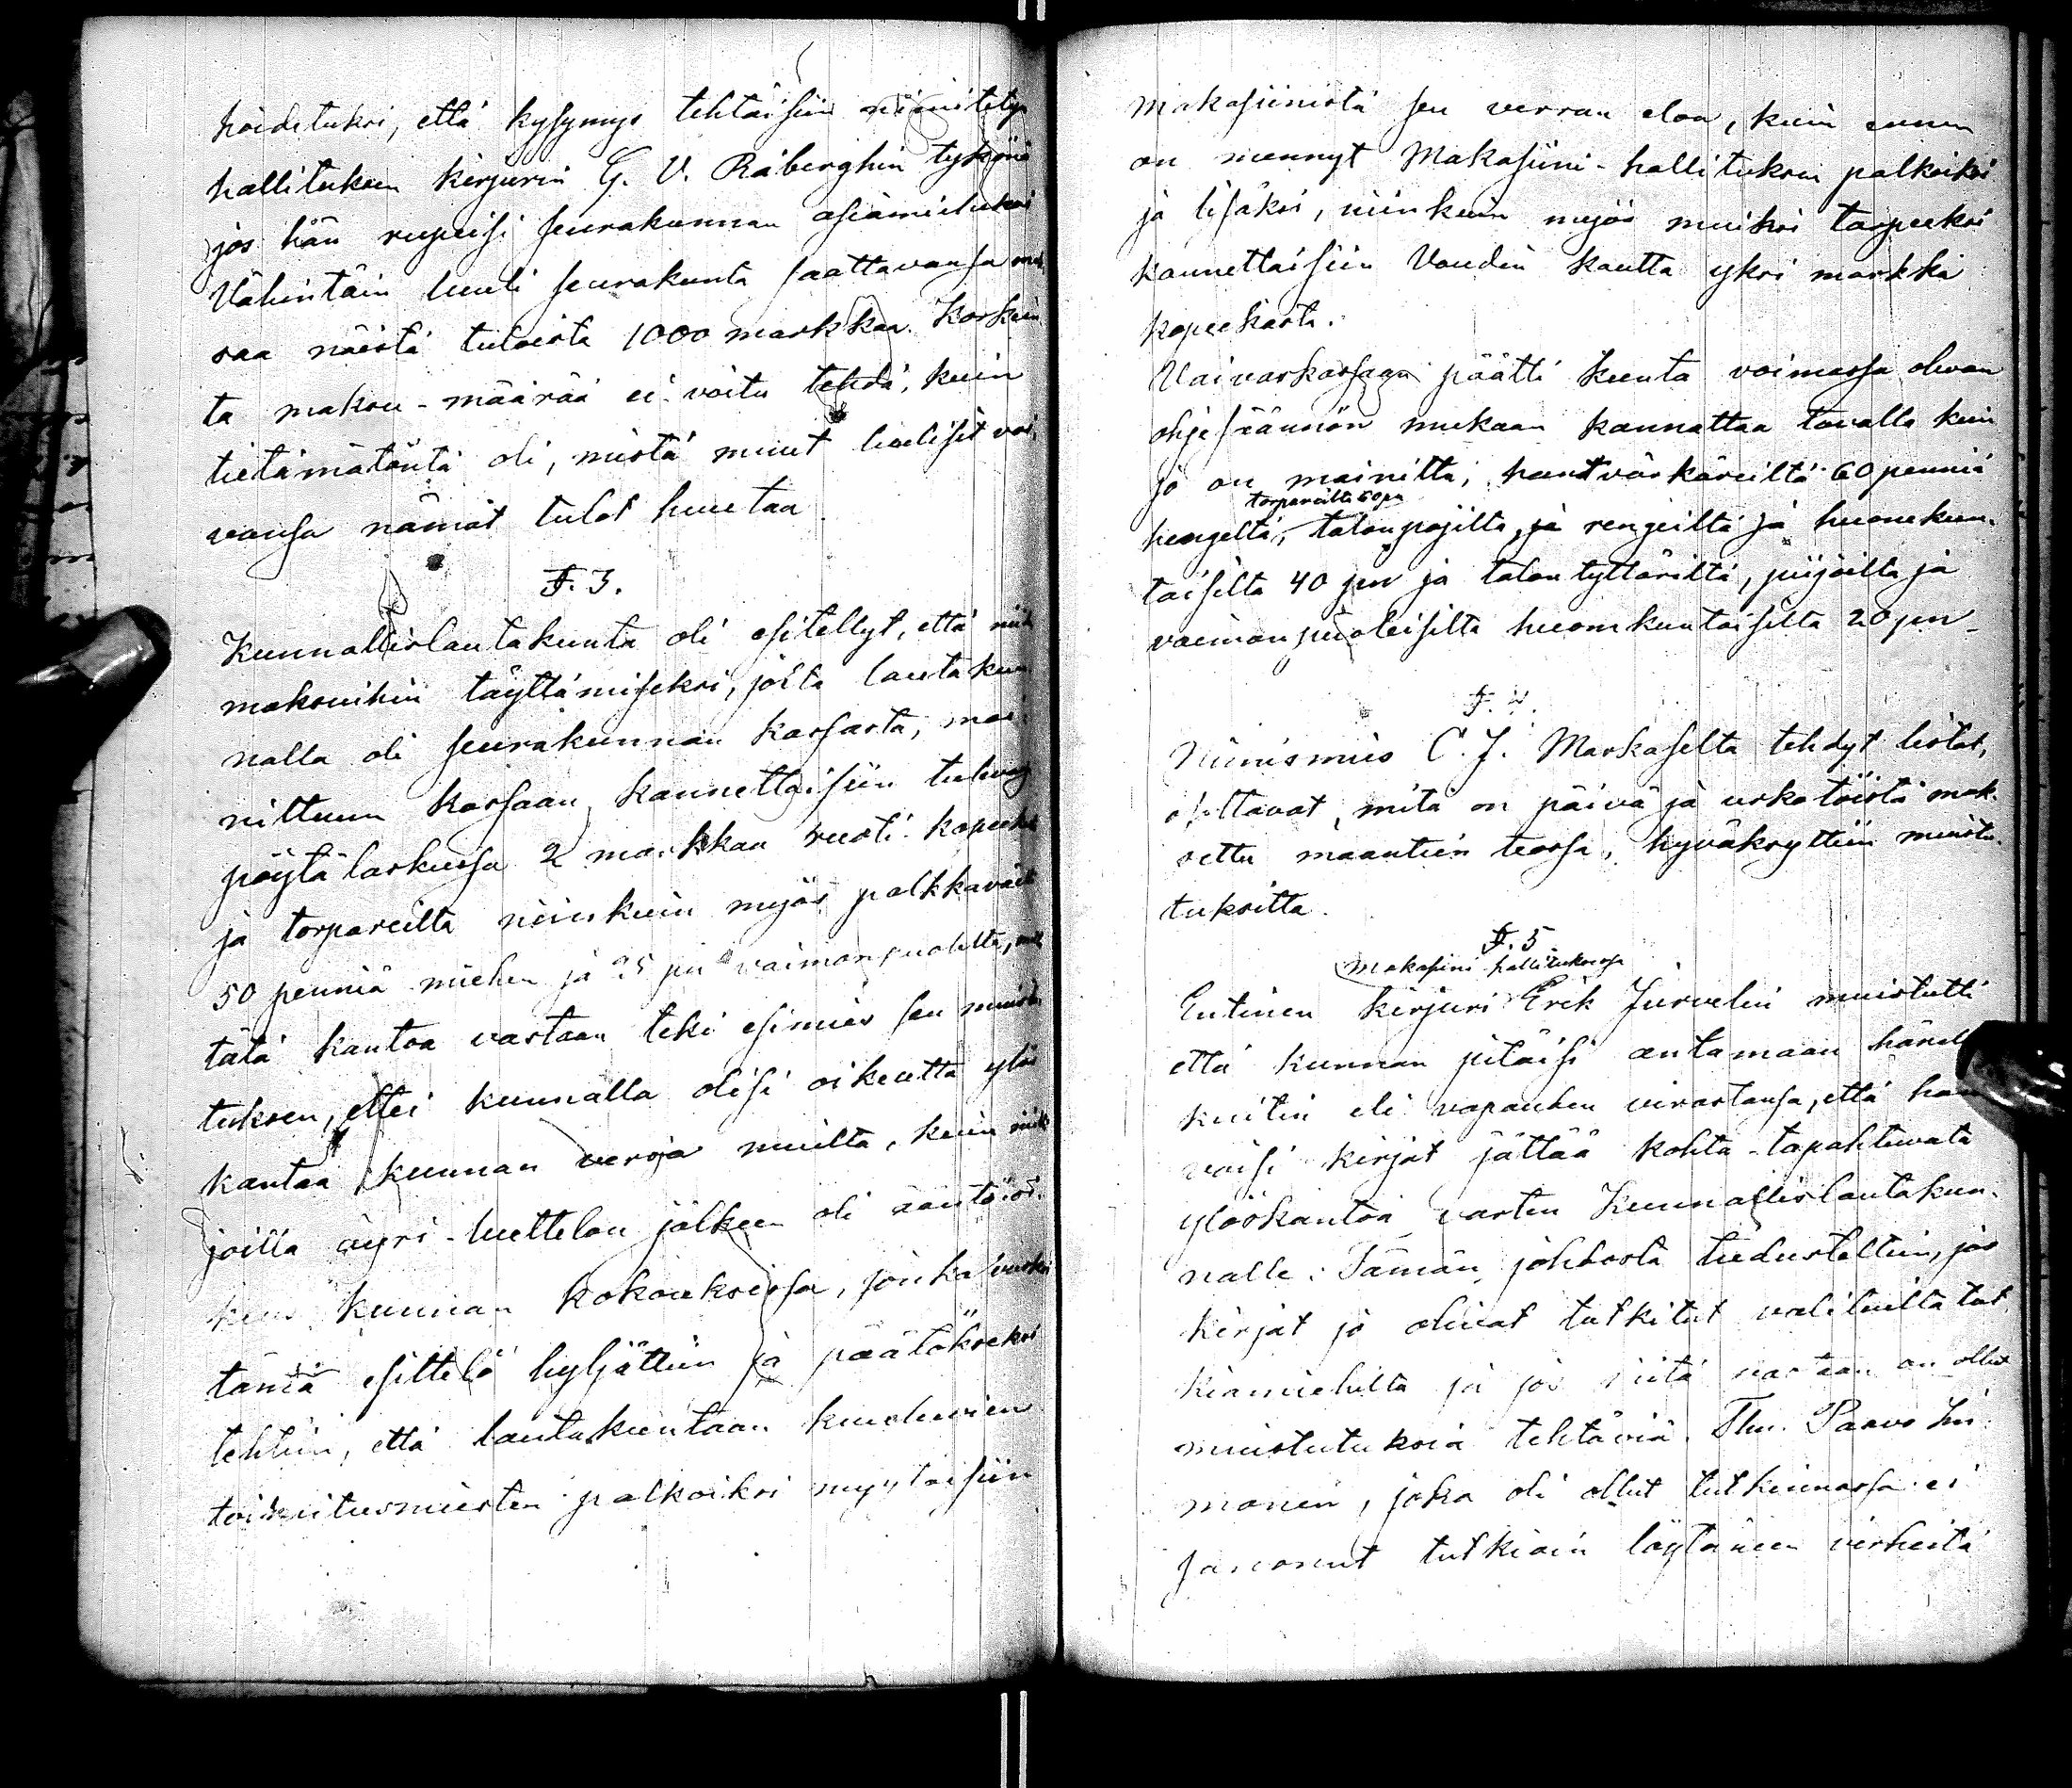 hoidetuksi, että kysymys tehtäisiin nimitetyn
hallituksen kirjurin G. V. Råberghin tykönä
jos hän rupeisi seurakunnan asiamieheksi
Vähintäin luuli seurakunta saattavansa
saa näistä tuloista 1000 markkaa. Korkein
ta maksu-määrää ei voitu tehdä, kuin
tietämätöntä oli, mistä muut luulisit voi
vansa nämät tulot huutaa
§. 3.
Kunnallislautakunta oli esitellyt, että niit
maksuihin täyttämiseksi, joita lautakun
nalla oli seurakunnan kassasta, mai
nittuun kassaan kannettaisiin tulevassa
pöytälaskussa 2 markkaa ruoti kopeekal
ja torpareilta niinkuin myös palkkaväeltä
50 penniä miehen ja 25 pn vaimonpuolelta,
tätä kantoa vastaan teki esimies sen muistu
tuksen, ettei kunnalla olisi oikeutta ylös
kantaa kunnan veroja muilta, kuin niiltä
joilla äyri-luettelon jälkeen oli ääntöoi
keus kunnan kokouksissa, jonka vuoksi
tämä esittelö hyljättiin ja päätökseksi
tehtiin, että lautakuntaan kuuluvien
toimitusmiesten palkoiksi myytäisiin
makasiinista sen verran eloa, kuin ennen
on mennyt Makasiini-hallituksen palkoiksi
ja lisäksi, niinkuin myös muiksi tarpeeksi
kannettaisiin Voudin kautta yksi markka
kopeekasta.
Vaivaskassaan päätti kunta voimassa olevan
ohjesäännön mukaan kannattaa tavalla kuin
jo on mainittu, hantvärkäreiltä 60 penniä
torpareilta 50 pn
hengeltä, talonpojilta, ja rengeiltä ja huonekun-
taisilta 40 pn ja talon tyttäriltä, piijoilta ja
vaimonpuoleisilta huonekuntaisilta 20 pn
§. 4.
Nimismies C. J. Markaselta tehdyt listat,
osottavat, mitä on päivä ja urkatöistä mak-
settu maantien teossa, hyväksyttiin muistu-
tuksitta.
§. 5
makasiini hallituksessa
Entinen kirjuri Erik Jurvelin muistutti
että kunnan pitäisi antamaan hänelle
kuitin eli vapauden virastansa, että hän
voisi kirjat jättää kohta-tapahtuvata
ylöskantoa varten Kunnallislautakun-
nalle. Tämän johdosta tiedusteltiin, jos
kirjat jo olivat tutkitut valituilta tut
kiamiehiltä ja jos niitä vastaan on ollut
muistutuksia tehtäviä. Thn. Paavo Im
monen, joka oli ollut tutkinnossa ei
sanonut tutkiain löytäneen virheitä